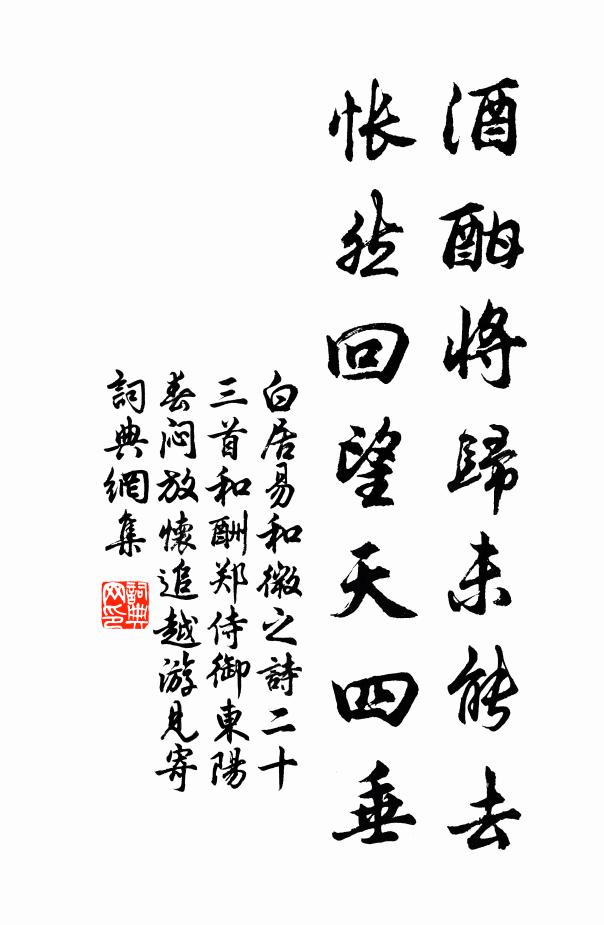 酒酣將歸未能去
悵然回望天四垂
白居易和微之詩二十
三首和酬郑侍御東陽
春闷放懷追越游見寄
詞典網集
詞典网印